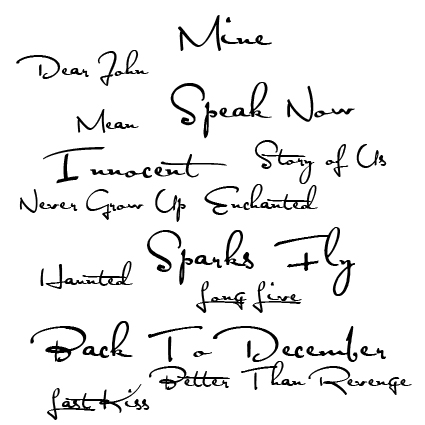 Mine
Dear John
Speak Now
Mean
Innocent
Story of Us
Never Grow Up
Enchanted
Sparks Fly
Haunted
Long Live
Back To December
Better Than Revenge
Last Kiss